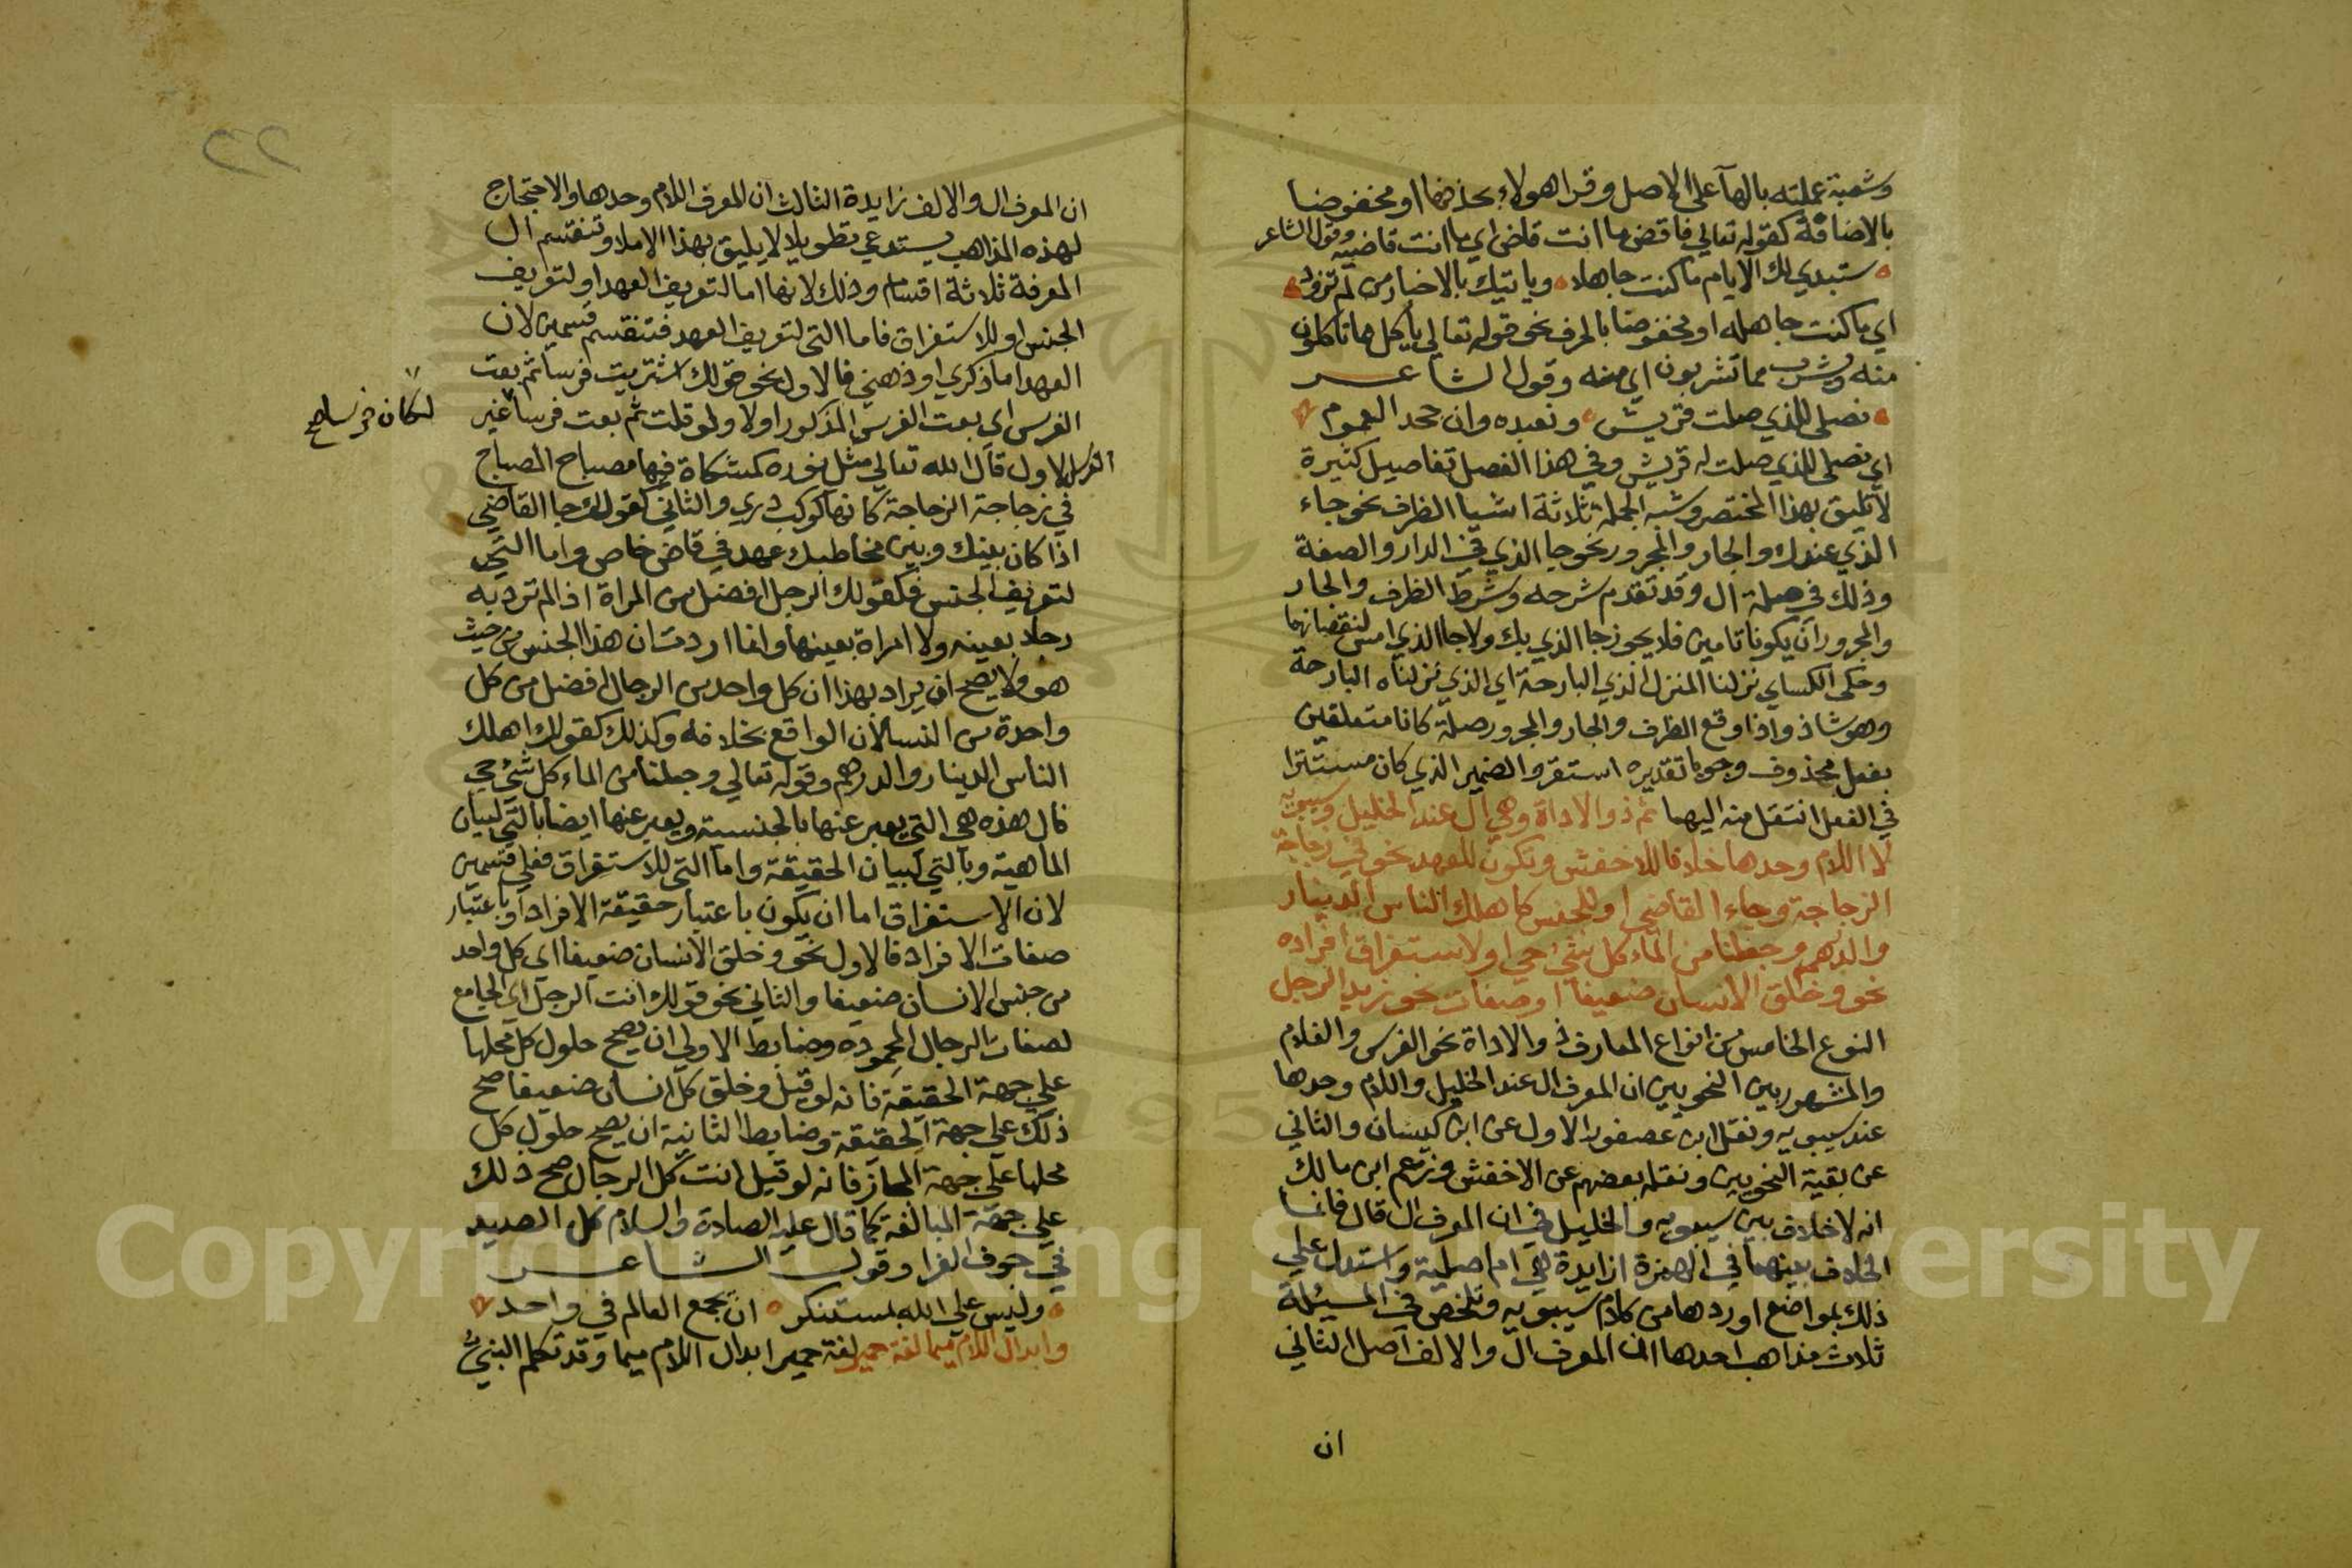 وشعبة عملته بالهآ على الاصل وقرا هولاء بحذفها او مخفوضا
بالاضافة كقوله تعالي فاقض ما انت قاض اي ما انت قاضيه وقول الشاعر
ستبدي لك الايام ما كنت جاهلا وياتيك بالاخبار من لم تزود
اي ما كنت جاهله او مخفوضا بالحرف نحو قوله تعالي يأكل مما تاكلون
منه ويشرب مما تشربون اي منه وقول الشاعر
نصلي للذي صلت قريش ونعبده وان جحد العموم
اي نصلي للذي صلت له قريش وفي هذا الفصل تفاصيل كثيرة
لا تليق بهذا المختصر وشبه الجملة ثلاثة اشيا الظرف نحو جاء
الذي عندك والجار والمجرور نحو جا الذي في الدار والصفة
وذلك في صلة ال وقد تقدم شرحه وشرط الظرف والجار
والمجرور ان يكونا تامين فلا يجوز جا الذي بك ولا جا الذي امس لنقصانهما
وحكى الكساي نزلنا المنزل الذي البارحة اي الذي نزلناه البارحة
وهو شاذ واذا وقع الظرف والجار والمجرور صلة كانا متعلقين
بفعل محذوف وجوبا تقديره استقر والضمير الذي كان مستترا
في الفعل انتقل منه اليهما ثم ذو الاداة وهي ال عند الخليل وسيبويه
لا اللام وحدها خلافا للاخفش وتكون للعهد نحو في زجاجة
الزجاجة وجاء القاضي او للجنس كاهلك الناس الدينار
والدرهم وجعلنا من الماء كل شيء حي او لاستغراق افراده
نحو وخلق الانسان ضعيفا او صفات نحو زيد الرجل
النوع الخامس من انواع المعارف ذو الاداة نحو الفرس والغلام
والمشهور بين النحويين ان المعرف ال عند الخليل واللام وحدها
عند سيبويه ونقل ابن عصفور الاول عن ابن كيسان والثاني
عن بقية النحويين ونقله بعضهم عن الاخفش وزعم ابن مالك
انه لا خلاف بين سيبويه والخليل في ان المعرف ال قال فانما
الخلاف بينهما في الهمزة ازايدة هي ام اصلية واستدل علي
ذلك بمواضع اوردها من كلام سيبويه وتلخص في المسئلة
ثلاث مذاهب احدها ان المعرف ال والالف اصل الثاني
ان
ان المعرف ال والالف زايدة الثالث ان المعرف اللام وحدها والاحتجاج
لهذه المذاهب يستدعي تطويلا لا يليق بهذا الاملا وتنقسم ال
المعرفة ثلاثة اقسام وذلك لانها اما لتعريف العهد او لتعريف
الجنس او للاستغراق فاما التي لتعريف العهد فتنقسم قسمين لان
العهد اما ذكري او ذهني فالاول نحو قولك اشتريت فرسا ثم بعت
الفرس اي بعت الفرس المذكور اولا ولو قلت ثم بعت فرسا غير
لكان فرسا
الفرس الاول قال الله تعالي مثل نوره كمشكاة فيها مصباح المصباح
في زجاجة الزجاجة كانها كوكب دري والثاني كقولك جا القاضي
اذا كان بينك وبين مخاطبك عهد في قاض خاص واما التي
لتعريف الجنس فكقولك الرجل افضل من المراة اذا لم ترد به
رجلا بعينه ولا امراة بعينها وانما اردت ان هذا الجنس من حيث
هو ولا يصح ان يراد بهذا ان كل واحد من الرجال افضل من كل
واحدة من النسا لان الواقع بخلافه وكذلك كقولك اهلك
الناس الدينار والدرهم وقوله تعالي وجعلنا من الماء كل شيء حي
فال هذه هي التي يعبر عنها بالجنسية ويعبر عنها ايضا بالتي لبيان
الماهية وبالتي لبيان الحقيقة واما التي للاستغراق فعلي قسمين
لان الاستغراق اما ان يكون باعتبار حقيقة الافراد او باعتبار
صفات الافراد فالاول نحو وخلق الانسان ضعيفا اي كل واحد
من جنس الانسان ضعيفا والثاني نحو قولك انت الرجل اي الجامع
لصفات الرجال المحموده وضابط الاولي ان يصح حلول كل محلها
علي جهة الحقيقة فانه لو قيل وخلق كل انسان ضعيفا صح
ذلك علي جهة الحقيقة وضابط الثانية ان يصح حلول كل
محلها علي جهة المجاز فانه لو قيل انت كل الرجال صح ذلك
علي جهة المبالغة كما قال عليه الصلاة والسلام كل الصيد
في جوف الفرا وقول الشاعر
وليس علي الله بمستنكر ان يجمع العالم في واحد
وابدال اللام ميما لغة حمير لغة حمير ابدال اللام ميما وقد تكلم النبي